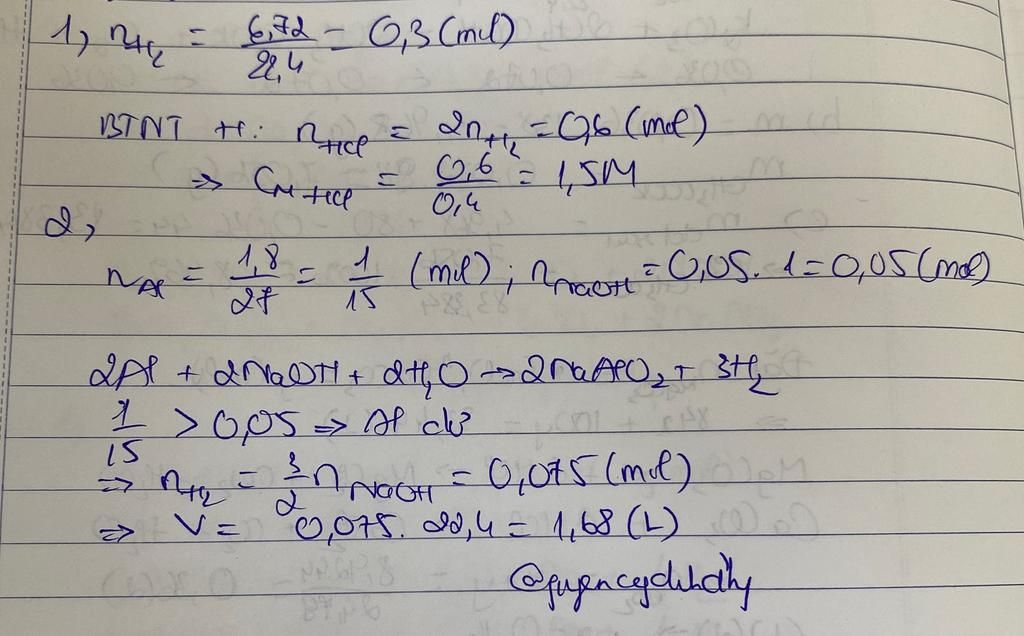 1, nH2 = 6,72/22,4 = 0,3 (mol)
BTNT H: nHCl = 2nH2 = 0,6 (mol)
⇒ CM HCl = 0,6/0,4 = 1,5M
2,
nAl = 1,8/27 = 1/15 (mol) ; nNaOH = 0,05. 1 = 0,05 (mol)
2Al + 2NaOH + 2H2O → 2NaAlO2 + 3H2
1/15 > 0,05 ⇒ Al dư
⇒ nH2 = 3/2 nNaOH = 0,075 (mol)
⇒ V = 0,075. 22,4 = 1,68 (L)